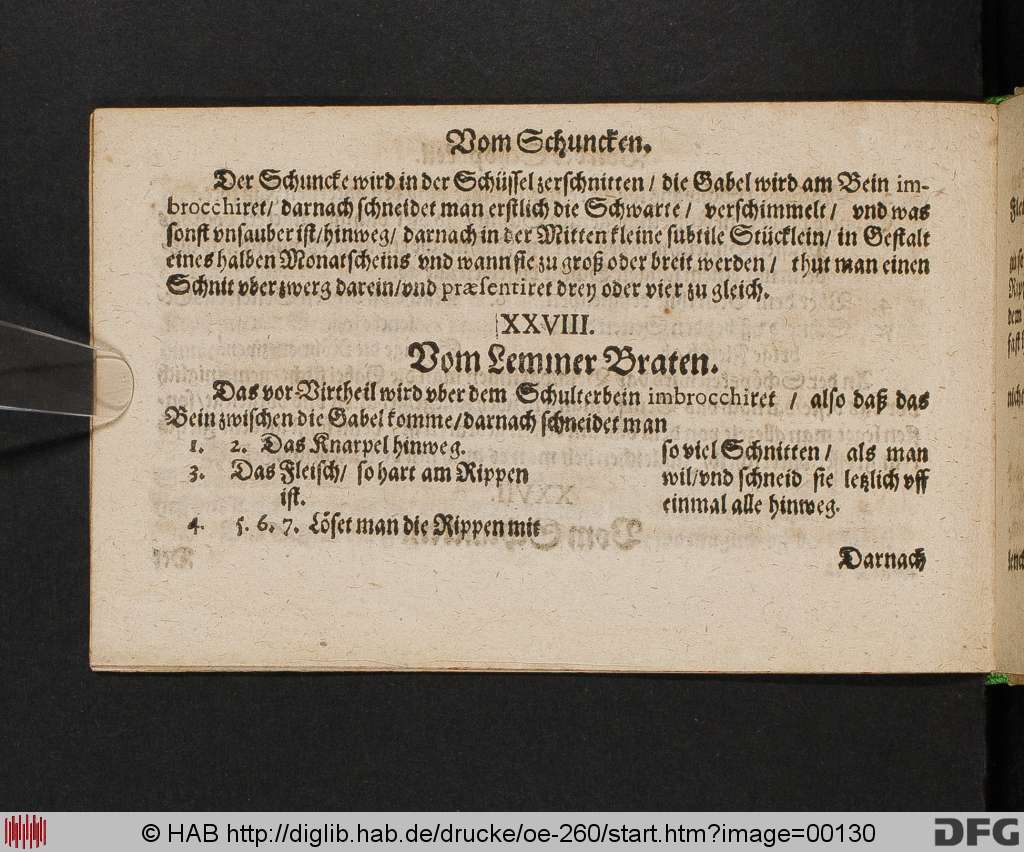 Vom Schuncken.
Der Schuncke wird in der Schüssel zerschnitten / die Gabel wird am Bein im-
brocchiret / darnach schneidet man erstlich die Schwarte / verschimmelt / vnd was
sonst vnsauber ist / hinweg / darnach in der Mitten kleine subtile Stücklein / in Gestalt
eines halben Monatscheins vnd wann sie zu groß oder breit werden / thut man einen
Schnit vber zwerg darein / vnd præsentiret drey oder vier zu gleich.
XXVIII.
Vom Lemmer Braten.
Das vor-Virtheil wird vber dem Schulterbein imbrocchiret / also daß das
Bein zwischen die Gabel komme / darnach schneidet man
1. 2. Das Knarpel hinweg.
3. Das Fleisch / so hart am Rippen
ist.
4. 5. 6. 7. Löset man die Rippen mit
so viel Schnitten / als man
wil / vnd schneid sie letzlich vff
einmal alle hinweg.
Darnach
© HAB http://diglib.hab.de/drucke/oe-260/start.htm?image=00130
DFG